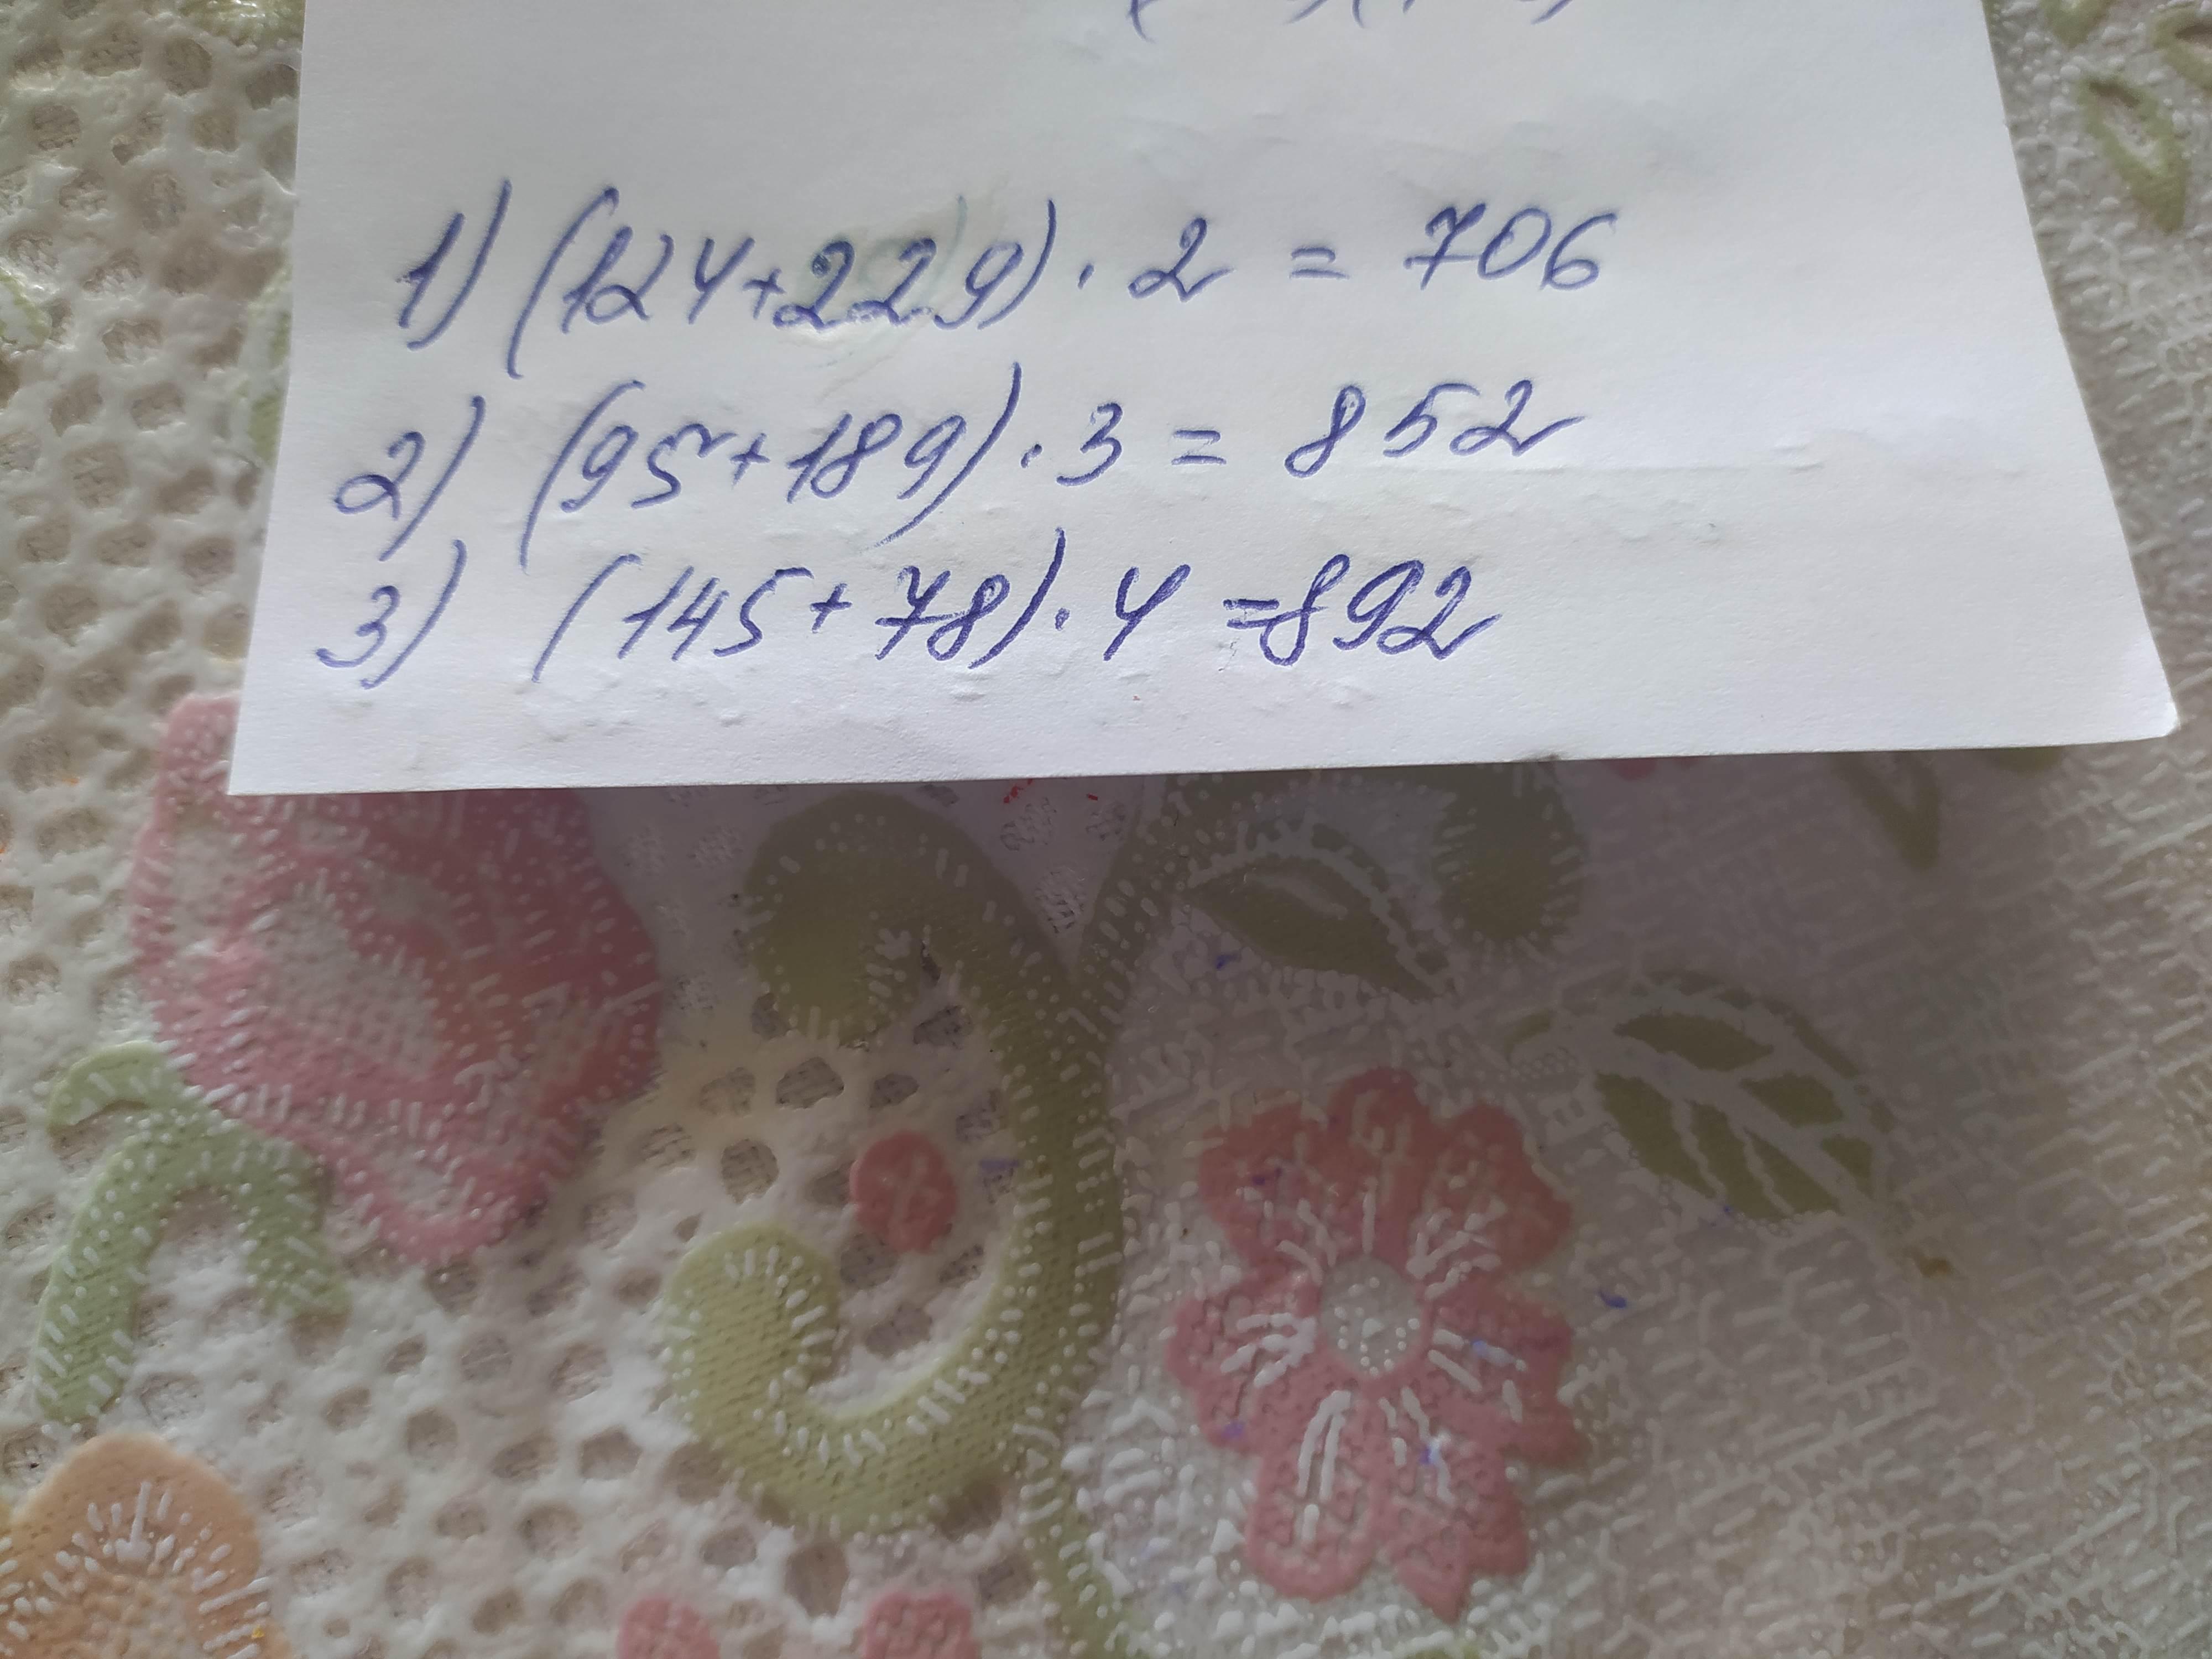 1) (124+229) · 2 = 706
2) (95+189) · 3 = 852
3) (145+78) · 4 =892